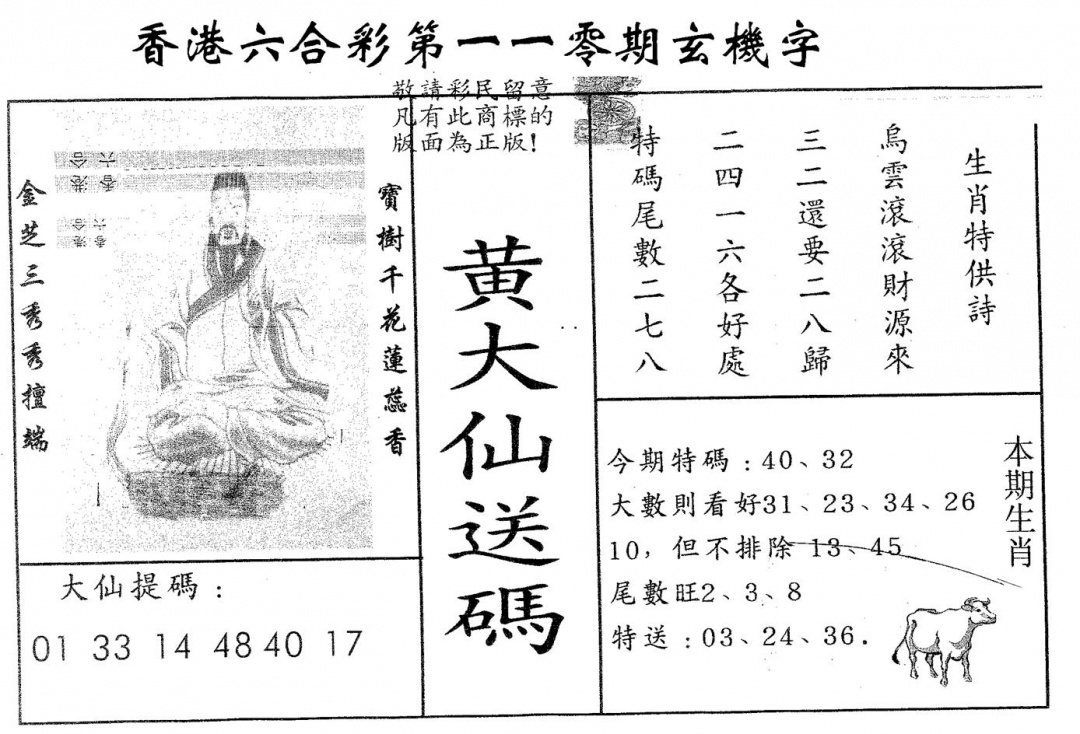 香港六合彩第一一零期玄機字
敬請彩民留意
凡有此商標的
版面為正版！
寶樹千花蓮蕊香
金芝三秀秀擅端
香港
六合
香港
六合
黃大仙送碼
大仙提碼：
01 33 14 48 40 17
生肖特供詩
烏雲滾滾財源來
三二還要二八歸
二四一六各好處
特碼尾數二七八
本期生肖
今期特碼：40、32
大數則看好31、23、34、26
10，但不排除 13、45
尾數旺2、3、8
特送：03、24、36.